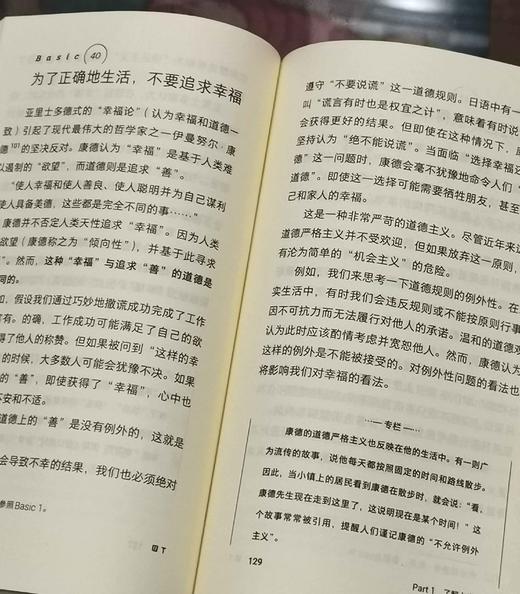 Basic 40
为了正确地生活，不要追求幸福
亚里士多德式的“幸福论”（认为幸福和道德一
致）引起了现代最伟大的哲学家之一伊曼努尔·康
德101的坚决反对。康德认为“幸福”是基于人类难
以遏制的“欲望”，而道德则是追求“善”。
“使人幸福和使人善良、使人聪明并为自己谋利
使人具备美德，这些都是完全不同的事……”
康德并不否定人类天性追求“幸福”。因为人类
欲望（康德称之为“倾向性”），并基于此寻求
”。然而，这种“幸福”与追求“善”的道德是
同的。
如，假设我们通过巧妙地撒谎成功完成了工作
有。的确，工作成功可能满足了自己的欲
得了他人的称赞。但如果被问到“这样的幸
的时候，大多数人可能会犹豫不决。如果
的“善”，即使获得了“幸福”，心中也
不安和不适。
道德上的“善”是没有例外的，这就是
会导致不幸的结果，我们也必须绝对
参照Basic 1。
遵守“不要说谎”这一道德规则。日语中有一
叫“谎言有时也是权宜之计”，意味着有时说
会获得更好的结果。但即使在这种情况下，康
坚持认为“绝不能说谎”。当面临“选择幸福还
德”这一问题时，康德会毫不犹豫地命令人们“
道德”。即使这一选择可能需要牺牲朋友，甚至
己和家人的幸福。
这是一种非常严苛的道德主义。尽管近年来这
道德严格主义并不受欢迎，但如果放弃这一原则，
有沦为简单的“机会主义”的危险。
例如，我们来思考一下道德规则的例外性。在
实生活中，有时我们会违反规则或不能按原则行事
因不可抗力而无法履行对他人的承诺。温和的道德观
认为此时应该酌情考虑并宽恕他人。然而，康德认为
这样的例外是不能被接受的。对例外性问题的看法也
将影响我们对幸福的看法。
专栏
康德的道德严格主义也反映在他的生活中。有一则广
为流传的故事，说他每天都按照固定的时间和路线散步。
因此，当小镇上的居民看到康德在散步时，就会说：“看，
康德先生现在走到这里了，这说明现在是某个时间！”这
个故事常常被引用，提醒人们谨记康德的“不允许例外
主义”。
129
Part 1 了解